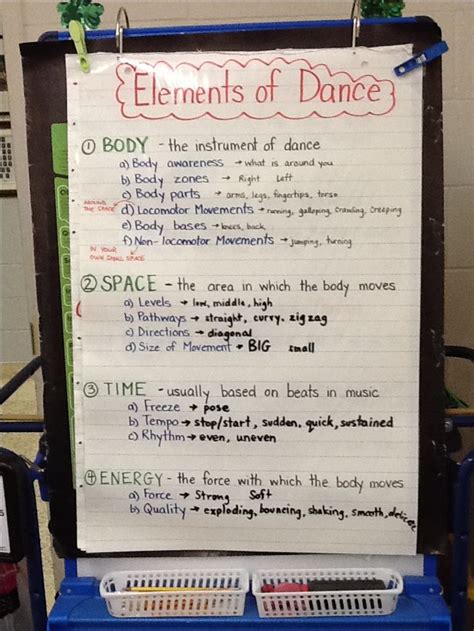 Elements of Dance
① BODY - the instrument of dance
a) Body awareness → what is around you
b) Body zones → Right Left
c) Body parts → arms, legs, fingertips, torso
AROUND THE SPACE
d) Locomotor Movements → running, galloping, crawling, creeping
e) Body bases → knees, back
f) Non-locomotor Movements → jumping, turning
IN YOUR OWN SMALL SPACE
② SPACE - the area in which the body moves
a) Levels → low, middle, high
b) Pathways → straight, curvy, zig zag
c) Directions → diagonal
d) Size of Movement → BIG small
③ TIME - usually based on beats in music
a) Freeze → pose
b) Tempo → stop/start, sudden, quick, sustained
c) Rhythm → even, uneven
④ ENERGY - the force with which the body moves
a) Force → Strong Soft
b) Quality → exploding, bouncing, shaking, smooth, delicate